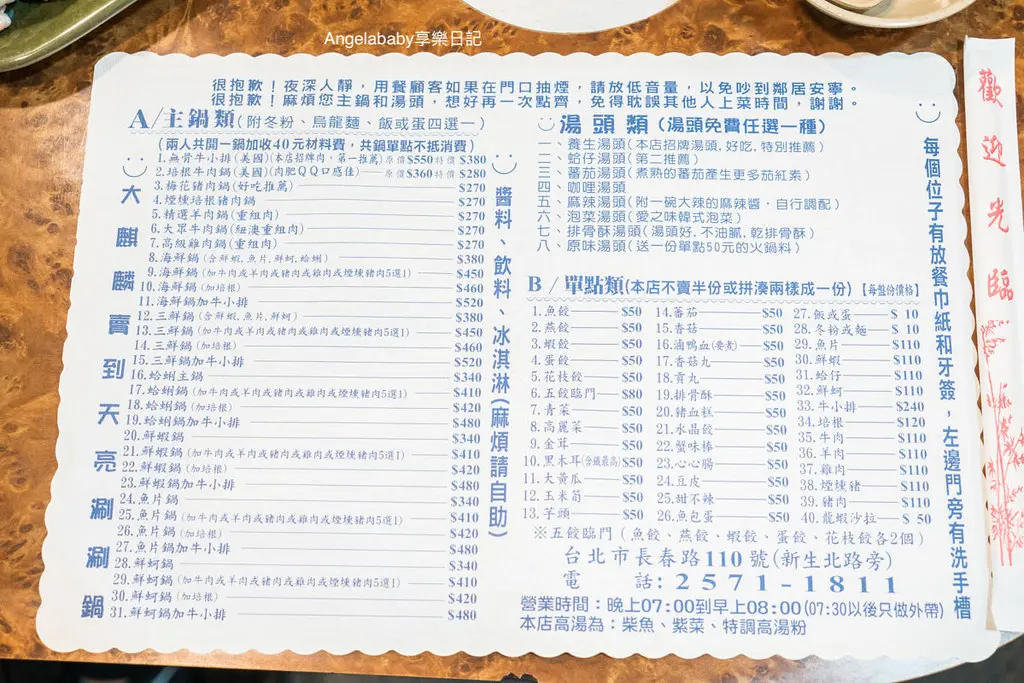 Angelababy享樂日記
很抱歉！夜深人靜，用餐顧客如果在門口抽煙，請放低音量，以免吵到鄰居安寧。
很抱歉！麻煩您主鍋和湯頭，想好再一次點齊，免得耽誤其他人上菜時間，謝謝。
大麒麟賣到天亮涮涮鍋
A/主鍋類(附冬粉、烏龍麵、飯或蛋四選一)
(兩人共開一鍋加收40元材料費，共鍋單點不抵消費)
1.無骨牛小排(美國)(本店招牌肉，第一推薦)原價$550特價$380
2.培根牛肉鍋(美國)(肉肥QQ口感佳)原價$360特價$280
3.梅花豬肉鍋(好吃推薦)$270
4.煙燻培根豬肉鍋$270
5.精選羊肉鍋(重組肉)$270
6.大眾牛肉鍋(紐澳重組肉)$270
7.高級雞肉鍋(重組肉)$270
8.海鮮鍋(含鮮蝦,魚片,鮮蚵,蛤蜊)$380
9.海鮮鍋(加牛肉或羊肉或豬肉或雞肉或煙燻豬肉5選1)$450
10.海鮮鍋(加培根)$460
11.海鮮鍋加牛小排$520
12.三鮮鍋(含鮮蝦,魚片,鮮蚵)$380
13.三鮮鍋(加牛肉或羊肉或豬肉或雞肉或煙燻豬肉5選1)$450
14.三鮮鍋(加培根)$460
15.三鮮鍋加牛小排$520
16.蛤蜊主鍋$340
17.蛤蜊鍋(加牛肉或羊肉或豬肉或雞肉或煙燻豬肉5選1)$410
18.蛤蜊鍋(加培根)$420
19.蛤蜊鍋加牛小排$480
20.鮮蝦鍋$340
21.鮮蝦鍋(加牛肉或羊肉或豬肉或雞肉或煙燻豬肉5選1)$410
22.鮮蝦鍋(加培根)$420
23.鮮蝦鍋加牛小排$480
24.魚片鍋$340
25.魚片鍋(加牛肉或羊肉或豬肉或雞肉或煙燻豬肉5選1)$410
26.魚片鍋(加培根)$420
27.魚片鍋加牛小排$480
28.鮮蚵鍋$340
29.鮮蚵鍋(加牛肉或羊肉或豬肉或雞肉或煙燻豬肉5選1)$410
30.鮮蚵鍋(加培根)$420
31.鮮蚵鍋加牛小排$480
醬料、飲料、冰淇淋(麻煩請自助)
湯頭類(湯頭免費任選一種)
一、養生湯頭(本店招牌湯頭,好吃,特別推薦)
二、蛤仔湯頭(第二推薦)
三、蕃茄湯頭(煮熟的蕃茄產生更多茄紅素)
四、咖哩湯頭
五、麻辣湯頭(附一碗大辣的麻辣醬，自行調配)
六、泡菜湯頭(愛之味韓式泡菜)
七、排骨酥湯頭(湯頭好,不油膩,乾排骨酥)
八、原味湯頭(送一份單點50元的火鍋料)
B/單點類(本店不賣半份或拼湊兩樣成一份)【每盤份價格】
1.魚餃$50
2.燕餃$50
3.蝦餃$50
4.蛋餃$50
5.花枝餃$50
6.五餃臨門$80
7.青菜$50
8.高麗菜$50
9.金茸$50
10.黑木耳(含鐵最高)$50
11.大黃瓜$50
12.玉米筍$50
13.芋頭$50
14.蕃茄$50
15.香菇$50
16.滷鴨血(要煮)$50
17.香菇丸$50
18.貢丸$50
19.排骨酥$50
20.豬血糕$50
21.水晶餃$50
22.蟹味棒$50
23.心心腸$50
24.豆皮$50
25.甜不辣$50
26.魚包蛋$50
27.飯或蛋$10
28.冬粉或麵$10
29.魚片$110
30.鮮蝦$110
31.蛤仔$110
32.鮮蚵$110
33.牛小排$240
34.培根$120
35.牛肉$110
36.羊肉$110
37.雞肉$110
38.煙燻豬$110
39.豬肉$110
40.龍蝦沙拉$50
※五餃臨門(魚餃、燕餃、蝦餃、蛋餃、花枝餃各2個)
台北市長春路110號(新生北路旁)
電話:2571-1811
營業時間：晚上07:00到早上08:00(07:30以後只做外帶)
本店高湯為：柴魚、紫菜、特調高湯粉
每個位子有放餐巾紙和牙簽，左邊門旁有洗手槽
歡迎光臨